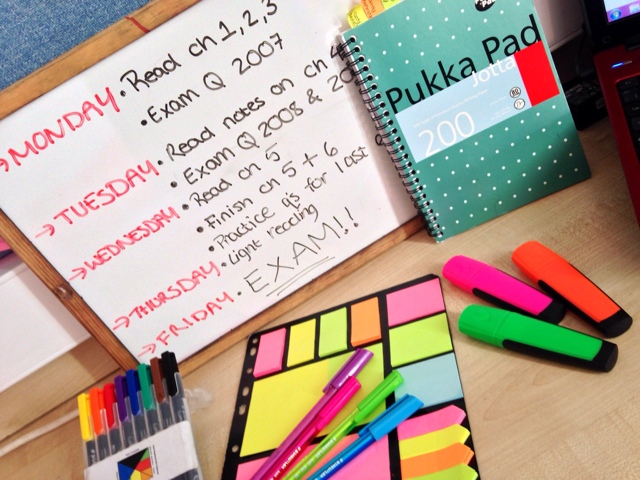 →MONDAY • Read ch 1, 2, 3
• Exam Q 2007
→TUESDAY • Read notes on ch 4
• Exam Q 2008 & 20
→WEDNESDAY • Read ch 5
• Finish ch 5 + 6
• Practice q's for last
→THURSDAY • Light reading
→FRIDAY • EXAM!!
Pukka Pad
Jotta
200